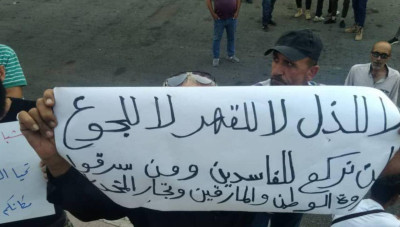 لا للذل لا للقهر لا للجوع
لن تركع للفاسدين ومن سرقوا
ثروة الوطن والمارقين وتجار